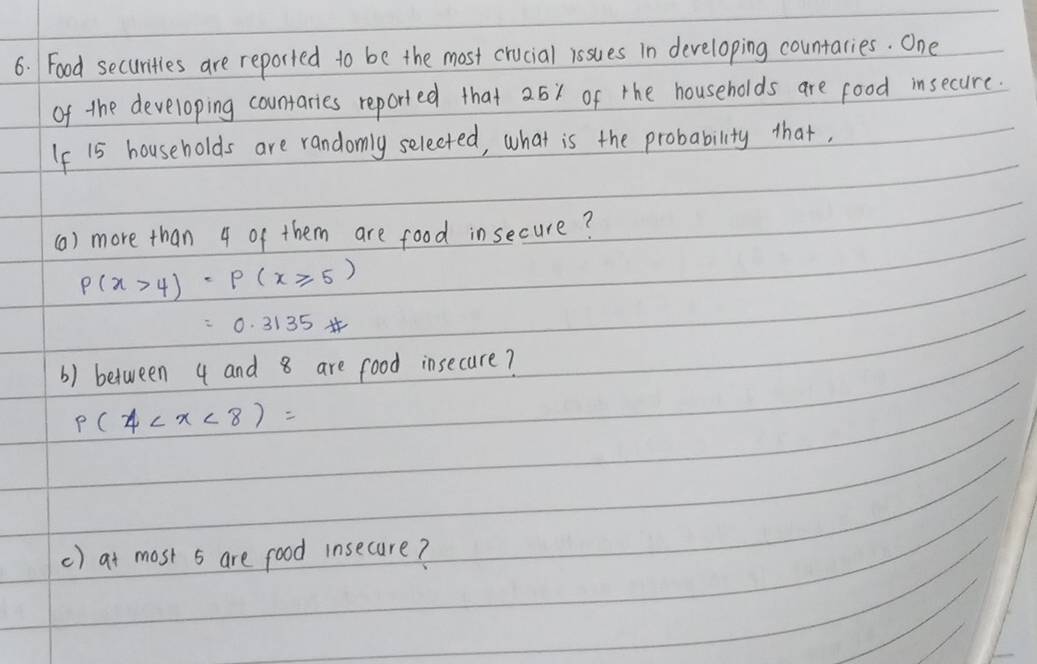 6. Food securities are reported to be the most crucial issues in developing countaries. One
of the developing countaries reported that 25% of the households are food insecure.
If 15 households are randomly selected, what is the probability that,
(a) more than 4 of them are food insecure?
P(x > 4) = P (x ≥ 5)
= 0.3135 #
b) between 4 and 8 are food insecure?
P( 4 < x < 8) =
c) at most 5 are food insecure?